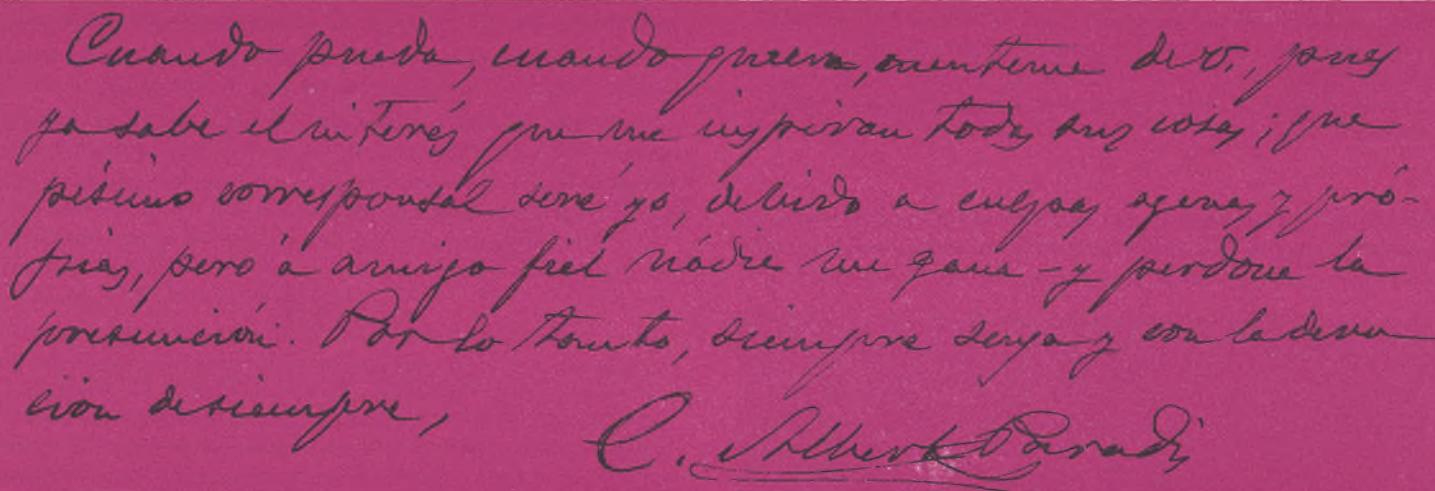 Cuando pueda, cuando quiera, cuenteme de V., pues
ya sabe el interés que me inspiran todas sus cosas; que
pésimo corresponsal seré yo, debido a culpas agenas y pró-
pias, pero á amigo fiel nádie me gana - y perdone la
presunción. Por lo tanto, siempre suya y con la devo
ción de siempre,
C. Albert Paradís